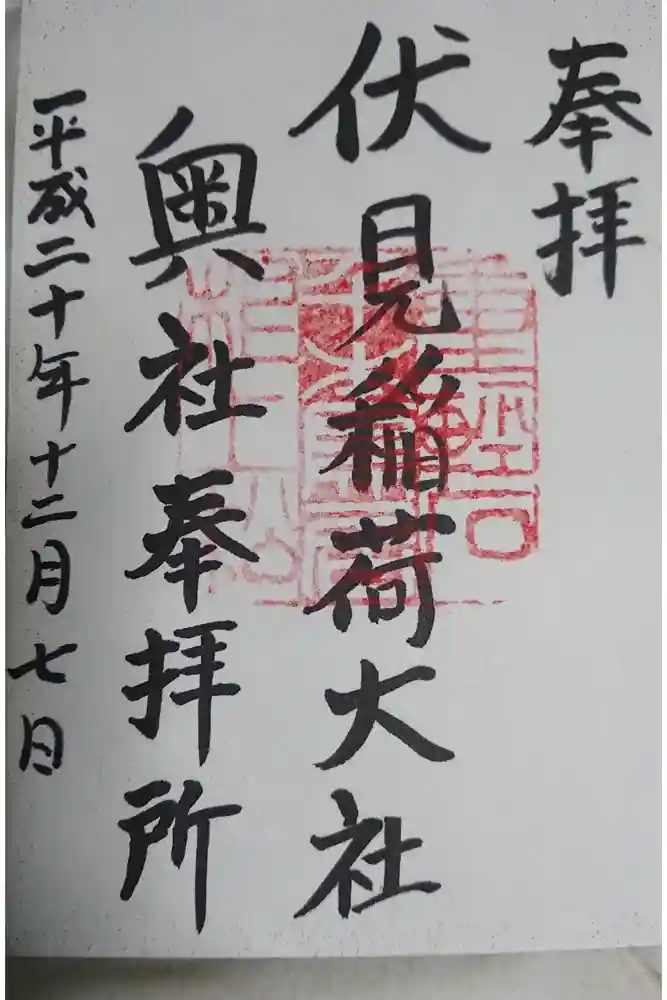 奉拝
伏見稲荷大社
奥社奉拝所
平成二十年十二月七日